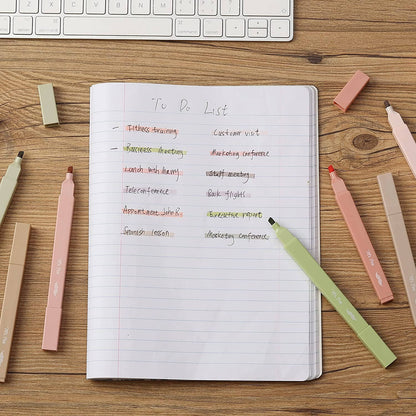 To Do List
- Fitness training
Customer visit
- Business meeting
Marketing conference
Lunch with Harry
Staff meeting
Teleconference
Book flights
Appointment John B.
Executive report
Spanish lesson
Marketing conference